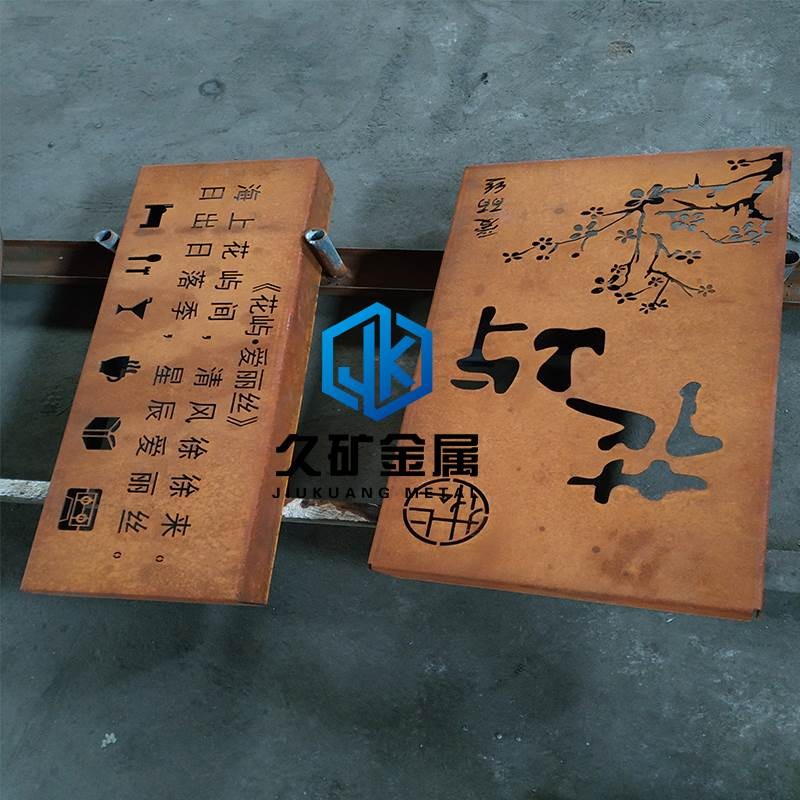 《花屿·爱丽丝》
海上花屿间，清风徐徐来。
日出日落季，星辰爱丽丝。
花屿
爱丽丝
JK
久矿金属
JIUKUANG METAL